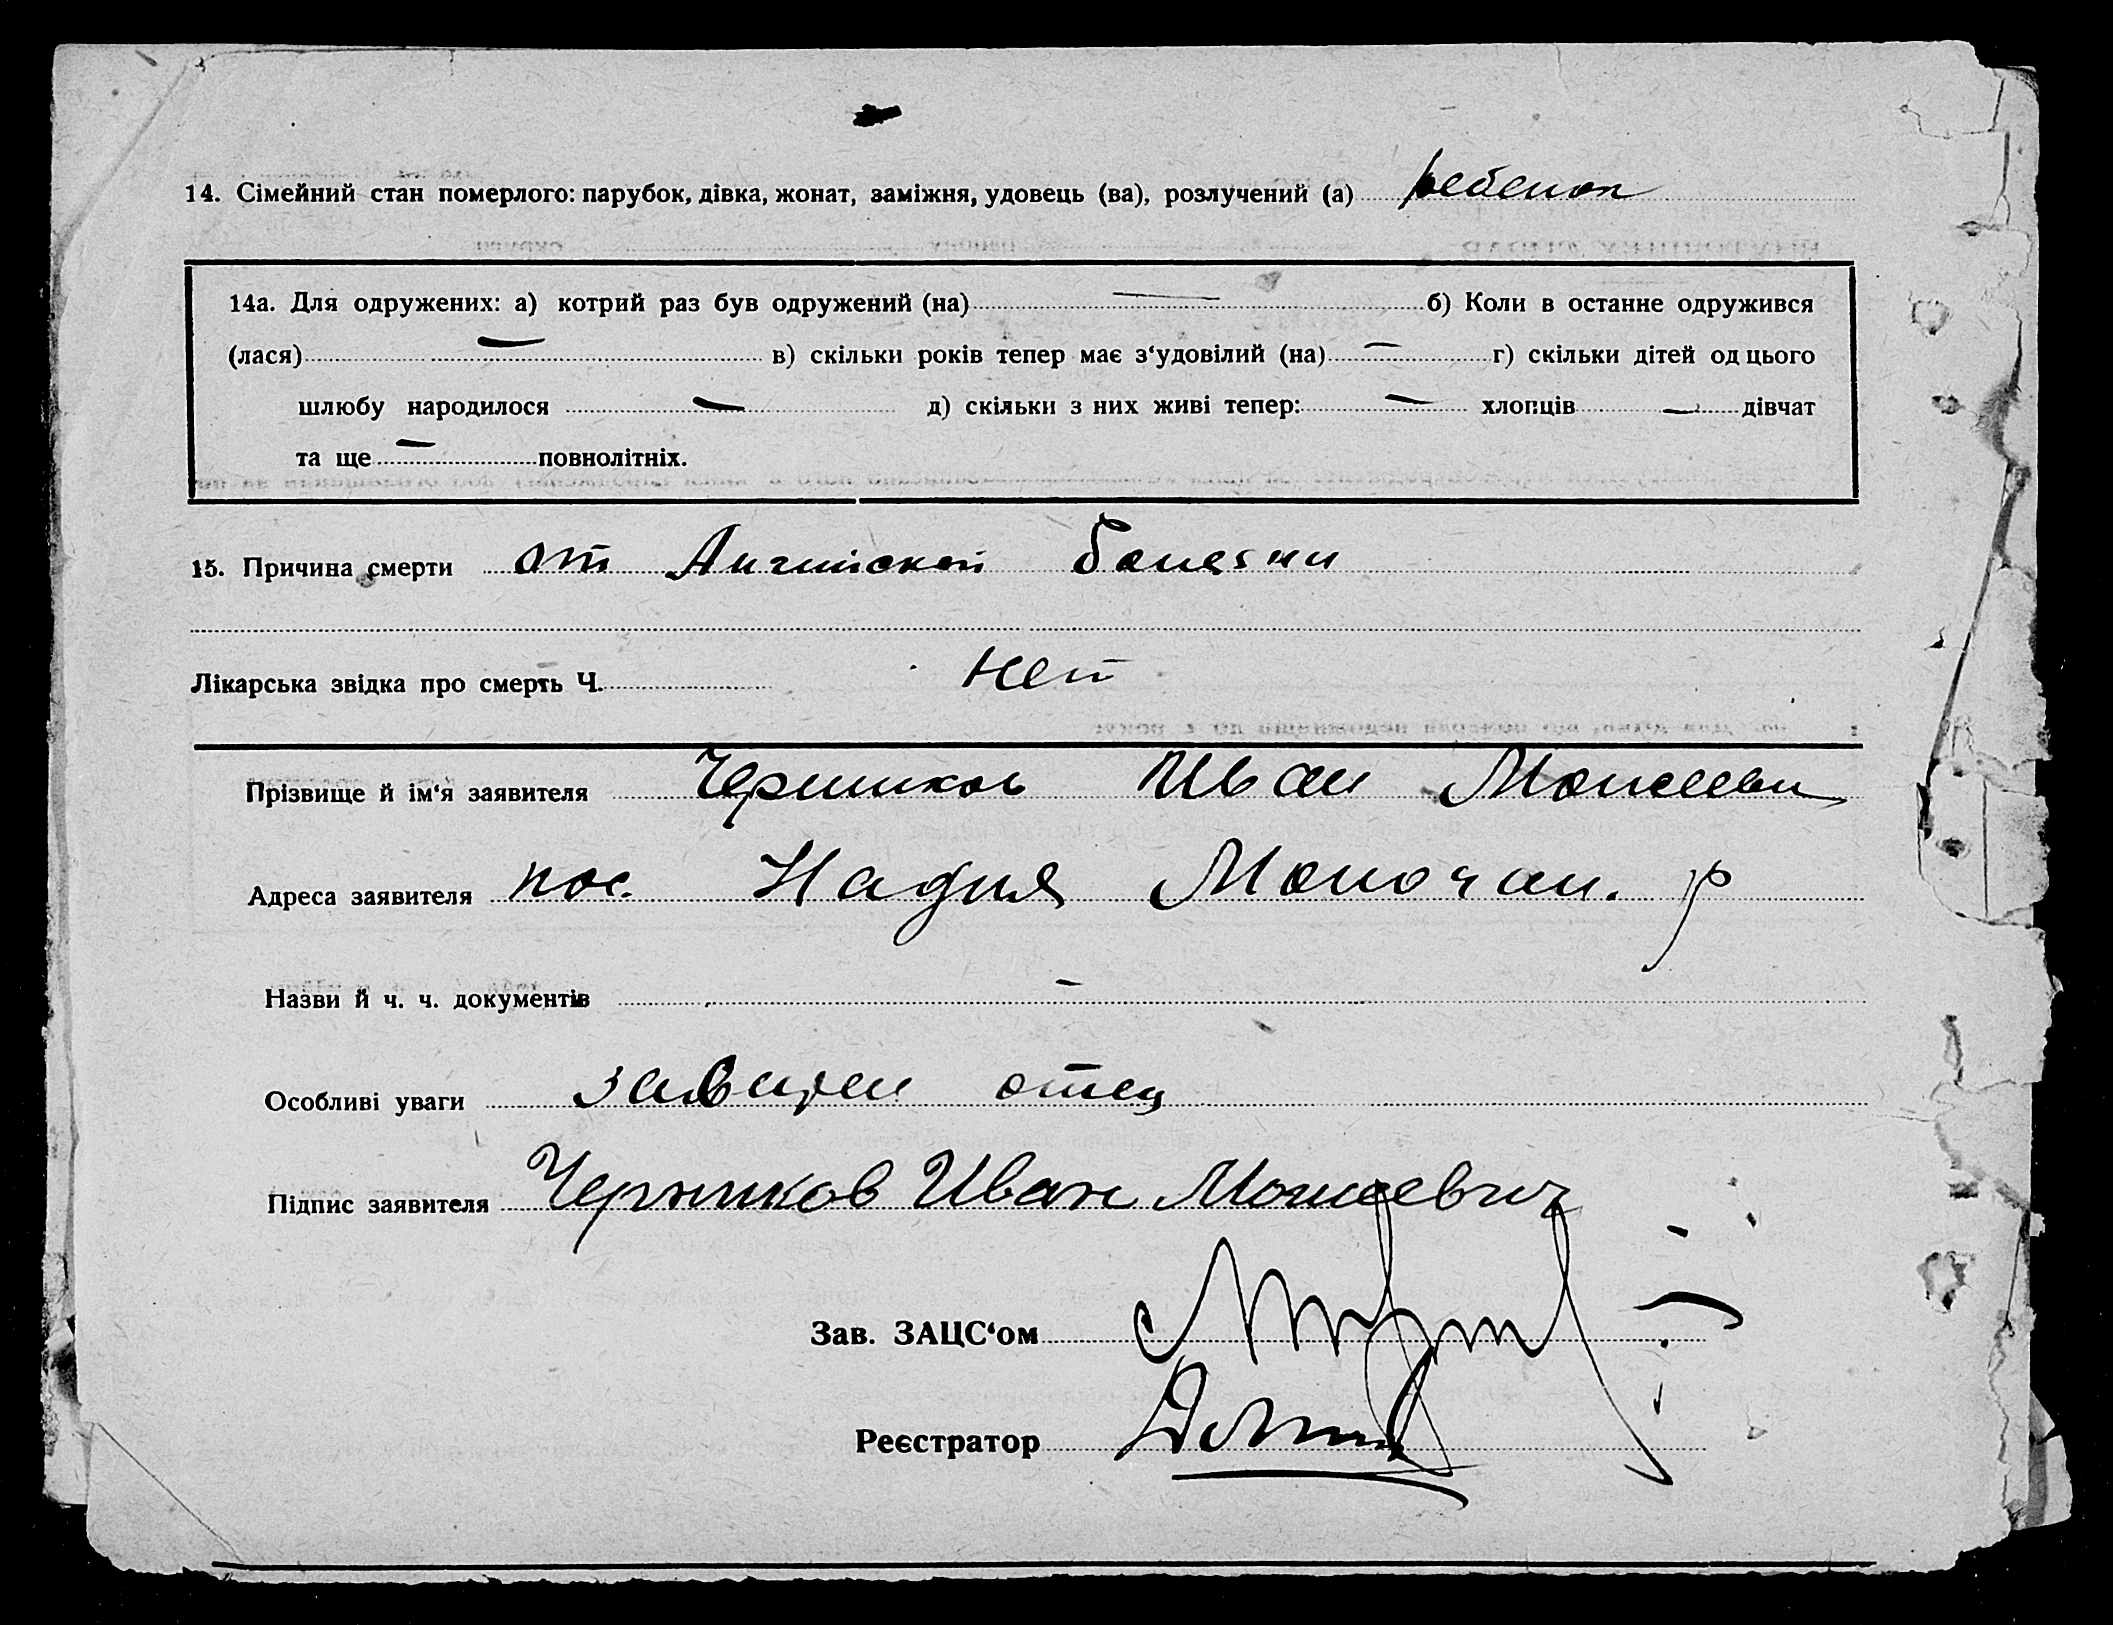 14. Сімейний стан померлого: парубок, дівка, жонат, заміжня, удовець (ва), розлучений (а) ребенок
14а. Для одружених: а) котрий раз був одружений (на) — б) Коли в останнє одружився
(лася) — в) скільки років тепер має з‘удовілий (на) — г) скільки дітей од цього
шлюбу народилося — д) скільки з них живі тепер: — хлопців — дівчат
та ще — повнолітніх.
15. Причина смерти от Англиской болезни
Лікарська звідка про смерть Ч. нет
Прізвище й ім‘я заявителя Черников Иван Моисееви
Адреса заявителя пос. Надия Молочан. р
Назви й ч. ч. документів —
Особливі уваги отец
Підпис заявителя Черников Иван Моисеевич
Зав. ЗАЦС‘ом
Реєстратор